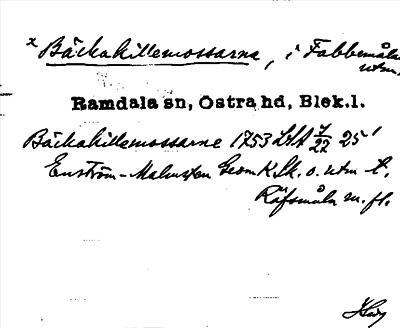 x Bäckahillemossarna, i Fabbemåla
utm.
Ramdala sn, Östra hd, Blek.l.
Bäckahillemossarne 1753 LSA 7/22 25'
Enström-Malmsten Geom K. Sk. o. utm t.
Räfsmåla m. fl.